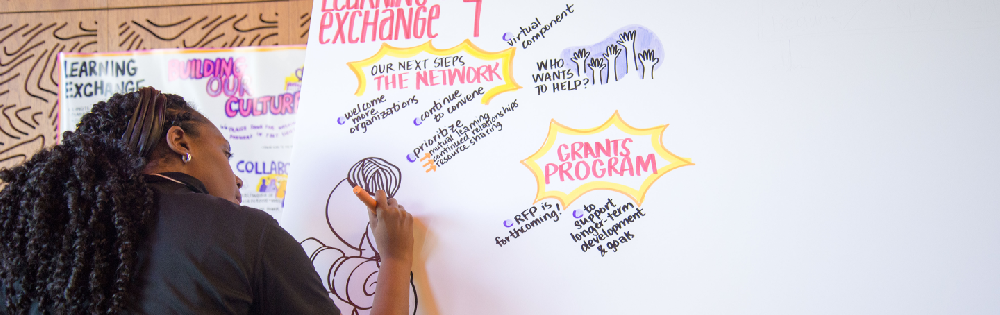 LEARNING
EXCHANGE 7
virtual
component
OUR NEXT STEPS
THE NETWORK
welcome
more
organizations
continue
to convene
prioritize
mutual learning
continued relationships
resource sharing
WHO
WANTS
TO HELP?
GRANTS
PROGRAM
RFP is
forthcoming!
to
support
longer-term
development
& goals
LEARNING
EXCHANGE
BUILDING
OUR
CULTURE
COLLABO